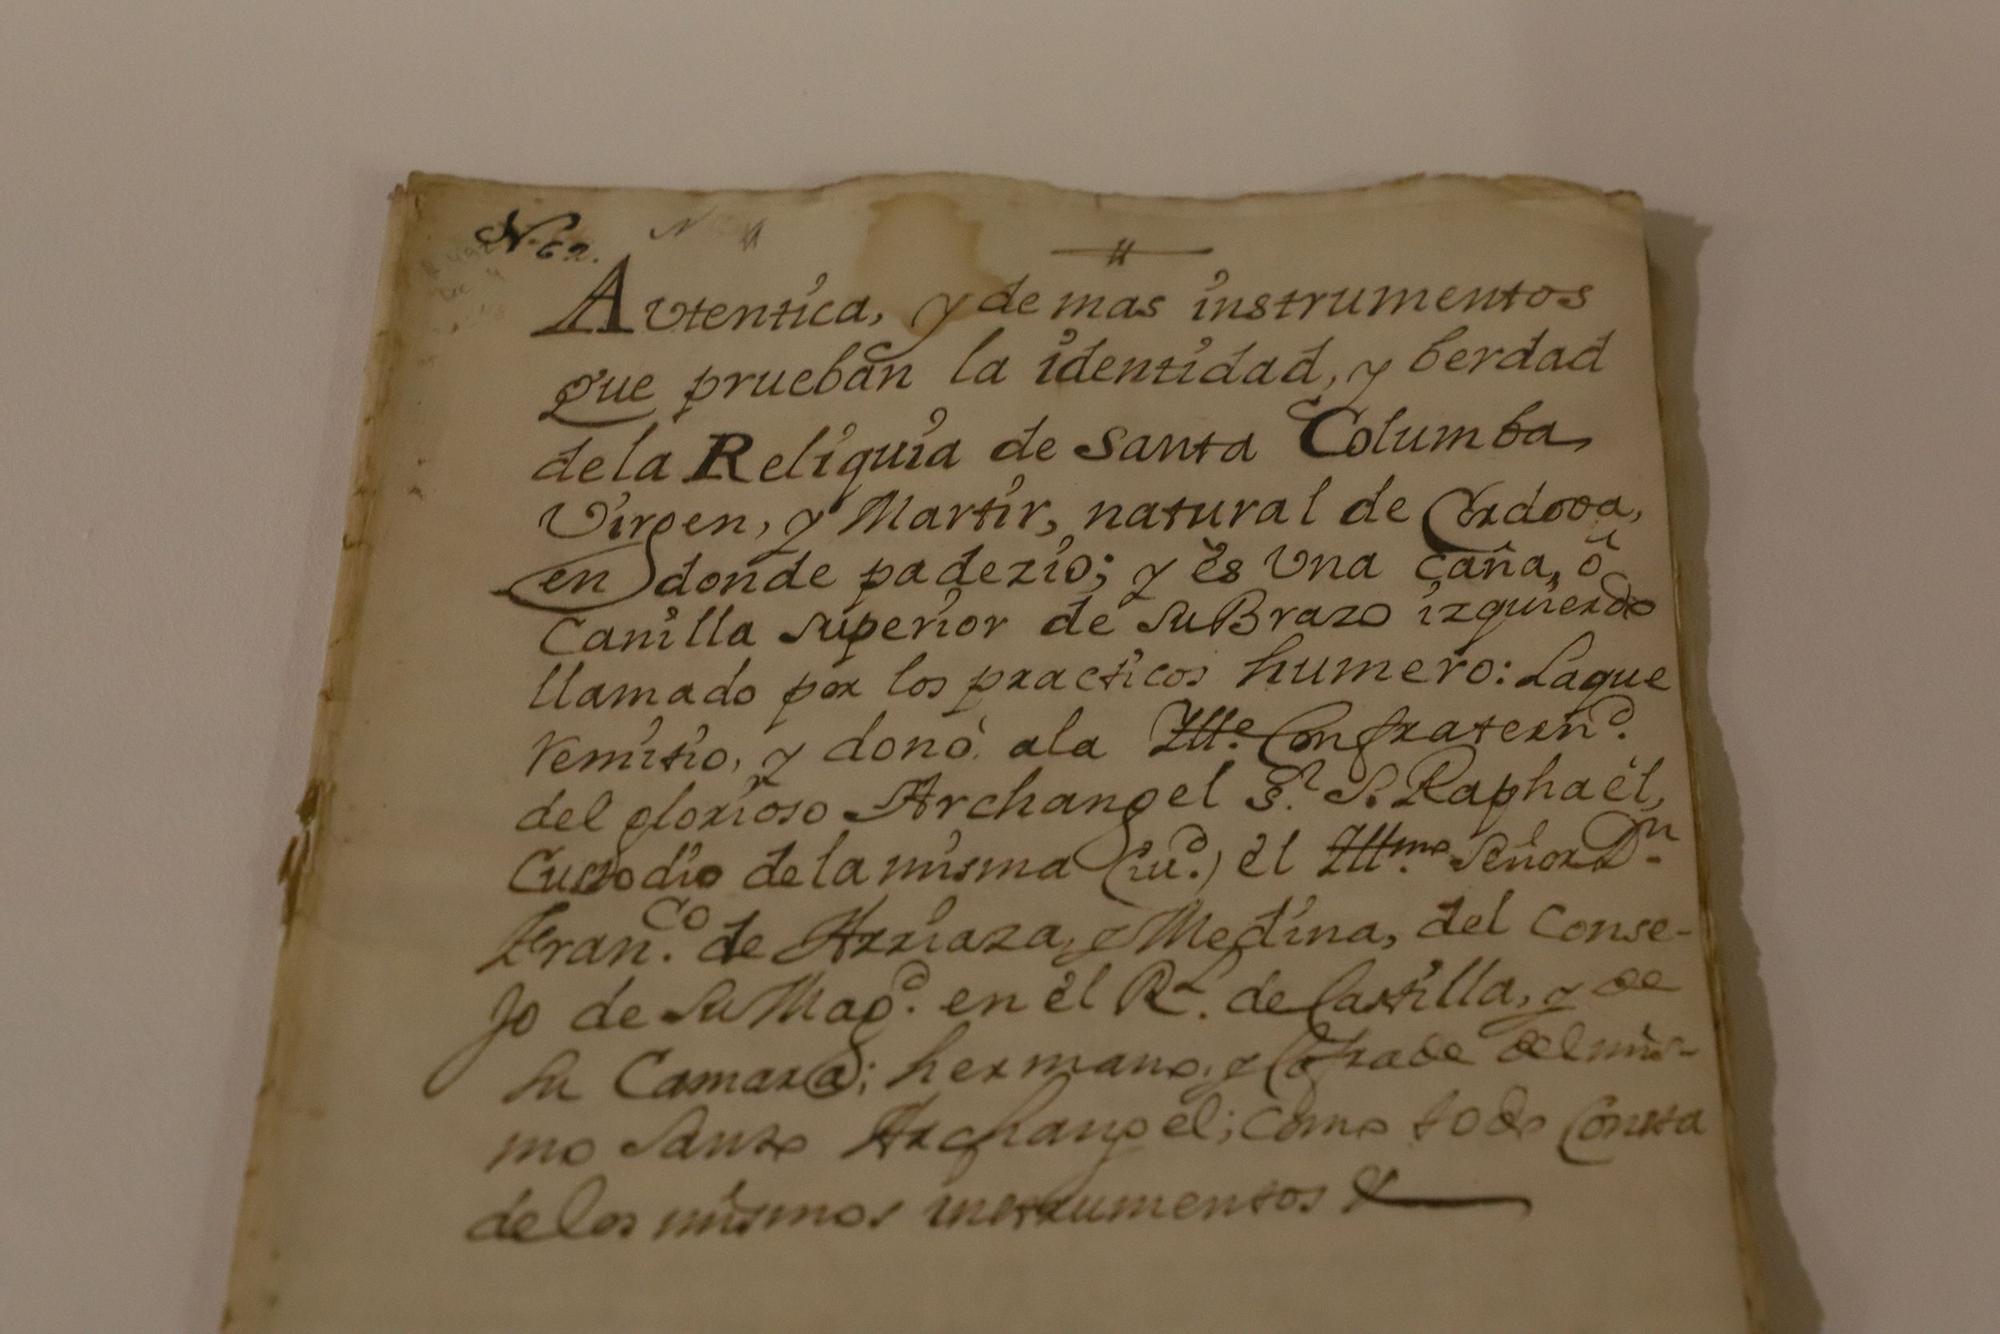 N. 62.
Autentica, y demas instrumentos
que prueban la identidad, y berdad
dela Reliquia de Santa Columba
Virgen, y Martir, natural de Cordova,
en donde padezio; y ès una caña, ò
Canilla superior de su Brazo izquierdo
llamado por los practicos humero: Laque
remitio, y donò ala Ill.e Confratern.d
del glorioso Archangel S.r S. Raphaèl,
Custodio dela misma Ciu.d) èl Ill.mo Señor D.n
Fran.co de Arriaza, y Medina, del Conse-
jo de su Mag.d en èl R.l de Castilla, y de
su Camara; hermano, y Cofrade del mis-
mo Santo Archangel; como todo consta
delos mismos instrumentos